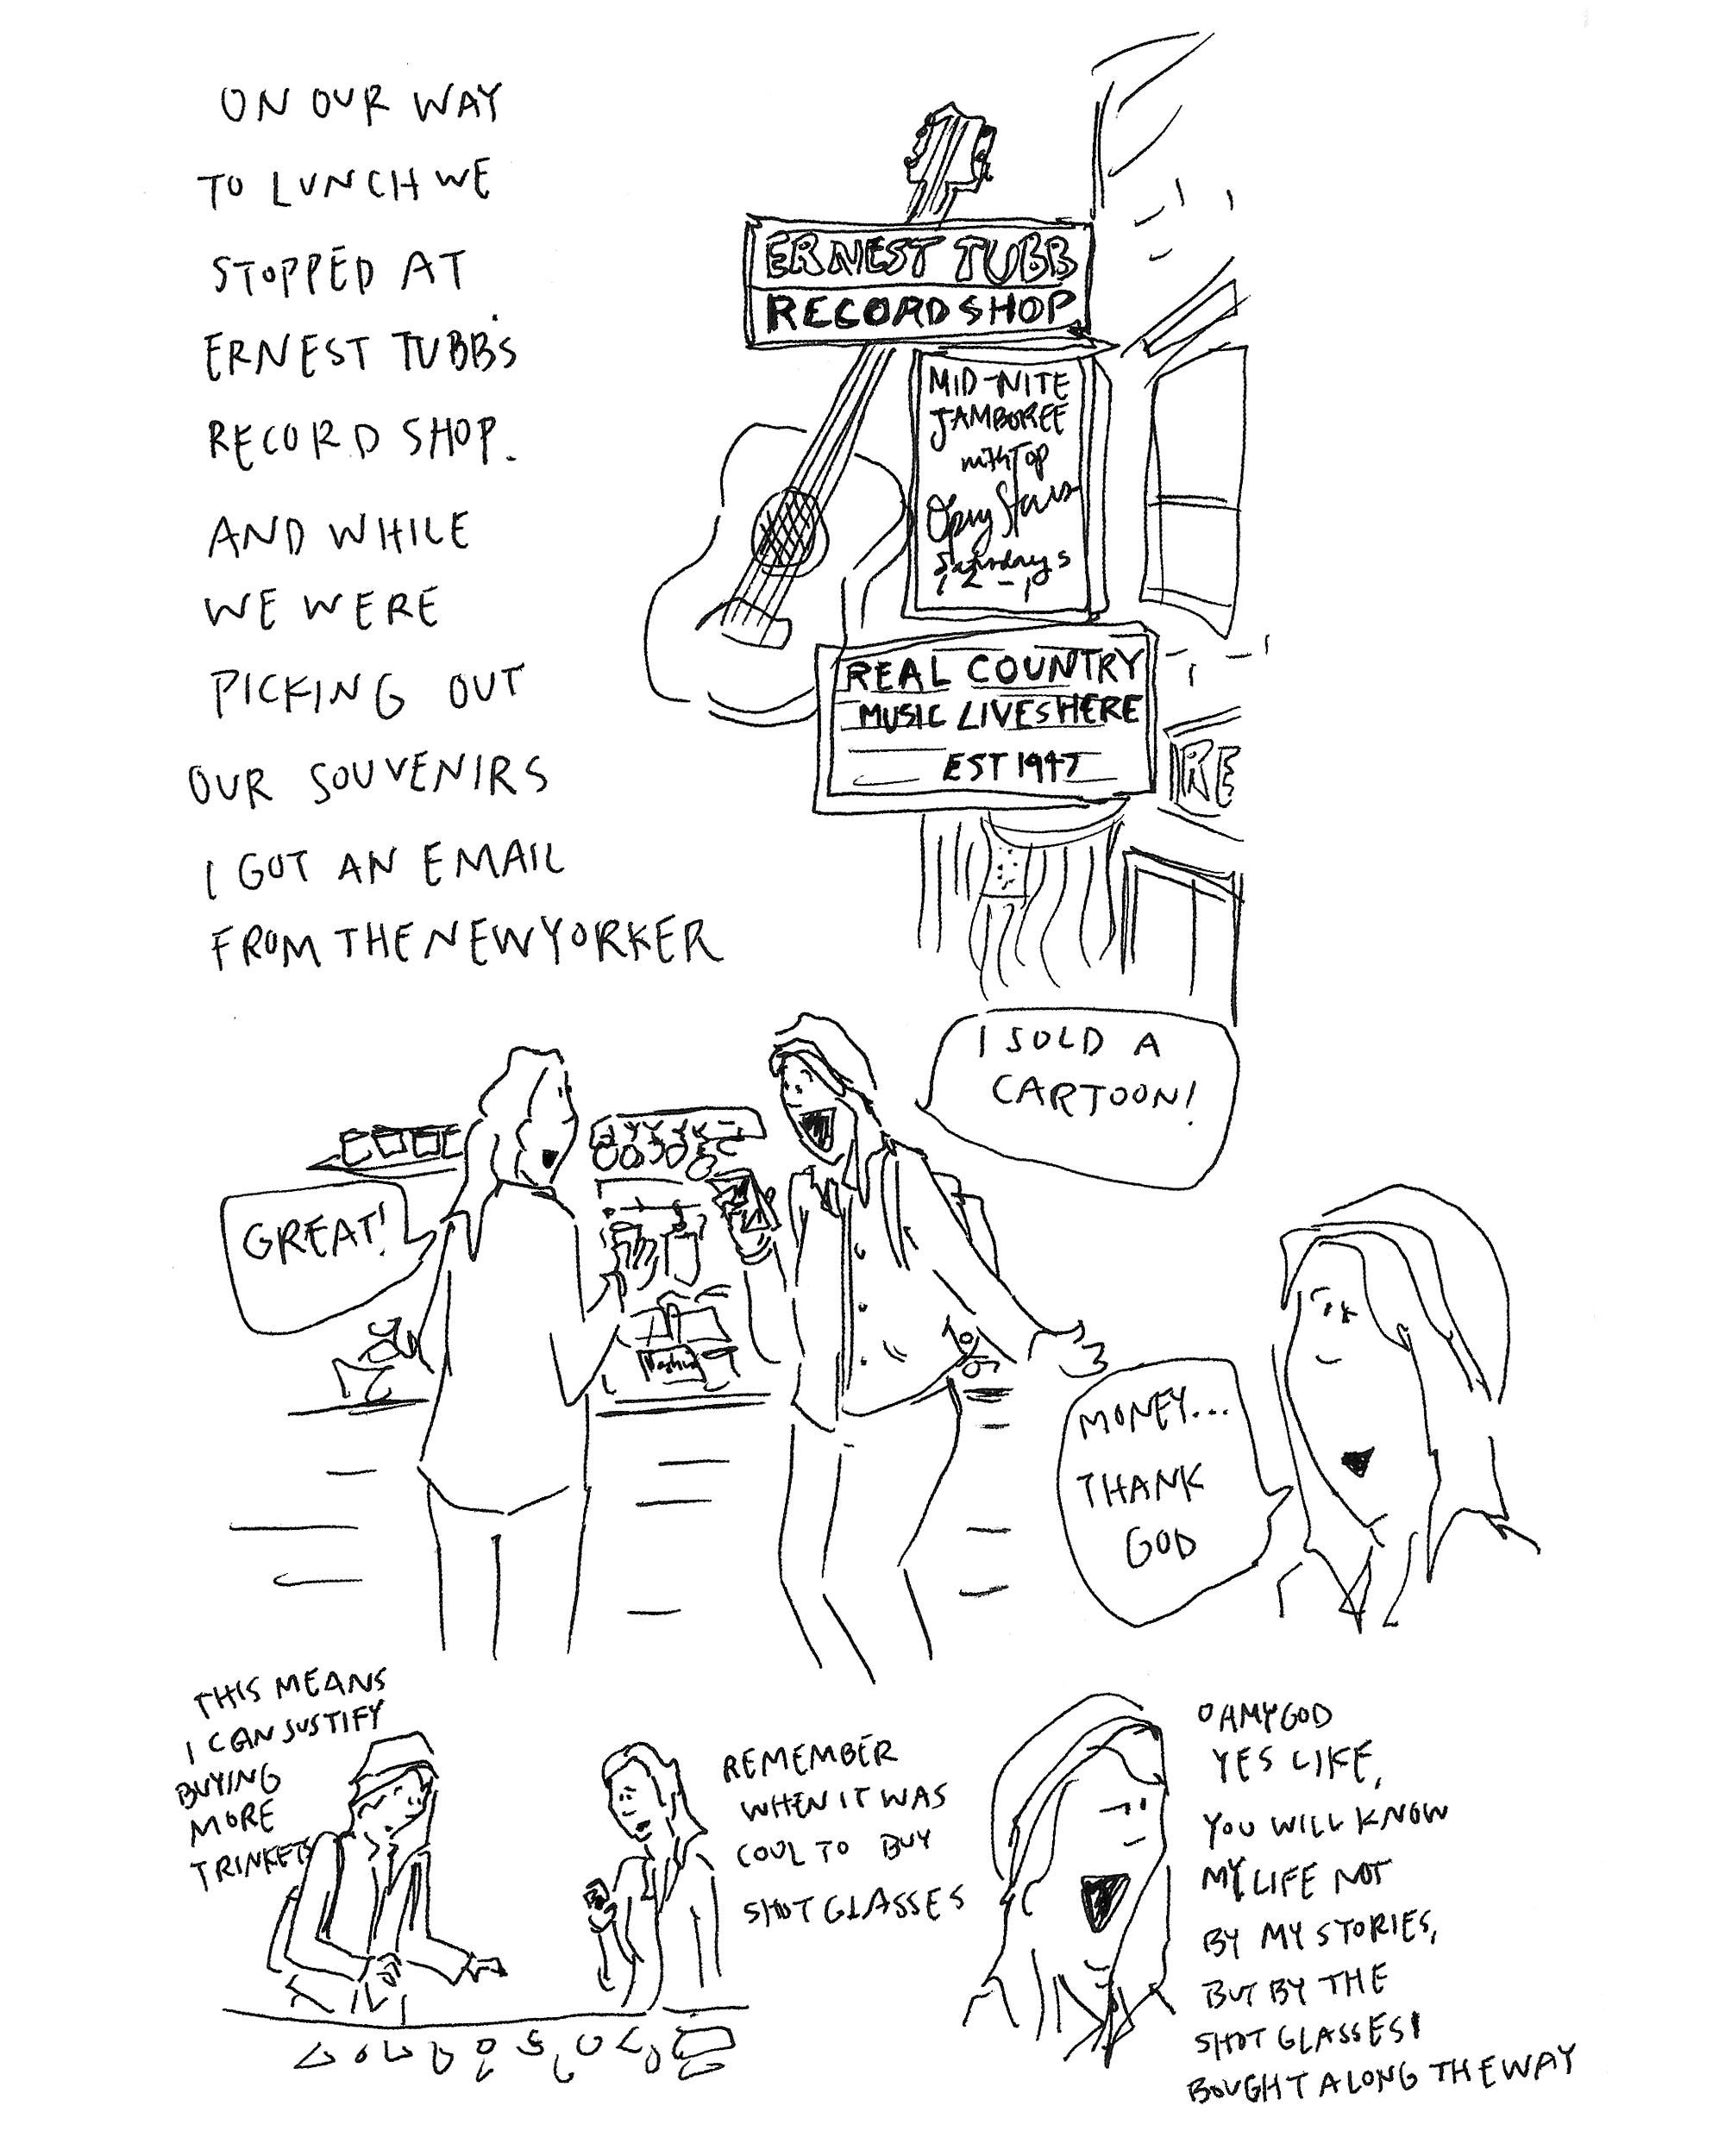 ON OUR WAY
TO LUNCH WE
STOPPED AT
ERNEST TUBB'S
RECORD SHOP.
AND WHILE
WE WERE
PICKING OUT
OUR SOUVENIRS
I GOT AN EMAIL
FROM THE NEW YORKER
ERNEST TUBB
RECORD SHOP
MID-NITE
JAMBOREE
with Top
Opry Stars
Saturdays
12-1
REAL COUNTRY
MUSIC LIVES HERE
EST 1947
RE
I SOLD A
CARTOON!
GREAT!
MONEY...
THANK
GOD
THIS MEANS
I CAN JUSTIFY
BUYING
MORE
TRINKETS
REMEMBER
WHEN IT WAS
COOL TO BUY
SHOT GLASSES
OH MY GOD
YES LIKE,
YOU WILL KNOW
MY LIFE NOT
BY MY STORIES,
BUT BY THE
SHOT GLASSES I
BOUGHT ALONG THE WAY